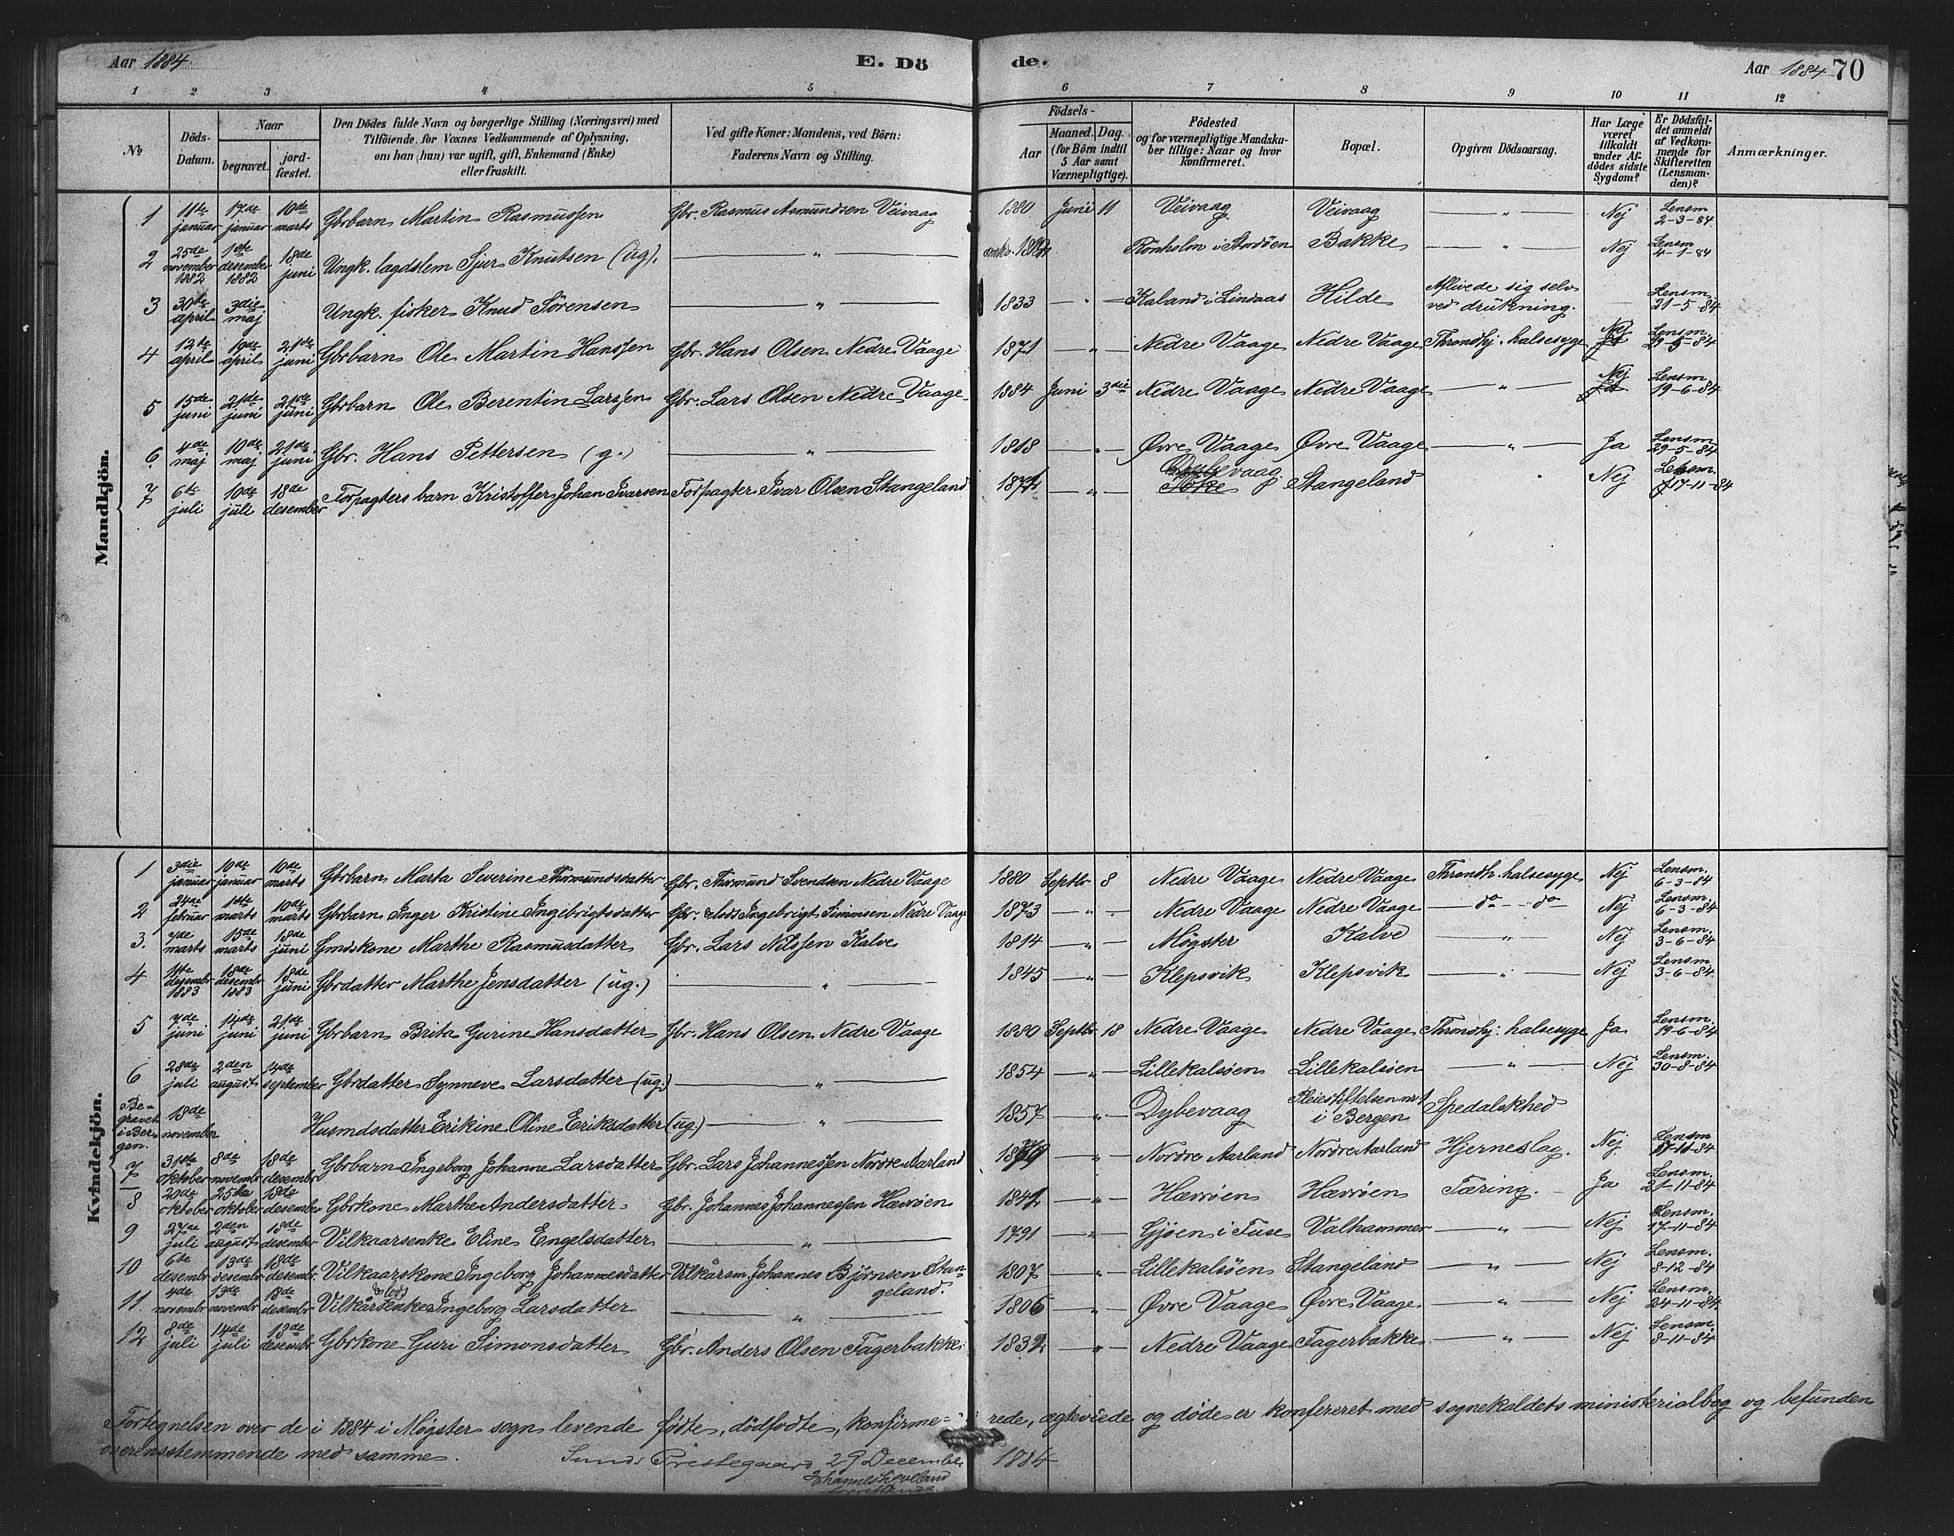 Aar 1884. E. Dö de. Aar 1884 70
1 2 3 4 5 6 7 8 9 10 11 12
No
Döds-Datum.
Naar
begravet.
jord-fæstet.
Den Dödes fulde Navn og borgerlige Stilling (Næringsvei) med
Tilföiende, for Voxnes Vedkommende af Oplysning,
om han (hun) var ugift, gift, Enkemand (Enke)
eller fraskilt.
Ved gifte Koner: Mandens, ved Börn:
Faderens Navn og Stilling.
Födsels-
Aar
Maaned. Dag.
(for Börn indtil
5 Aar samt
Værnepligtige).
Födested
og for værnepligtige Mandska-
ber tillige: Naar og hvor
konfirmeret.
Bopæl.
Opgiven Dödsaarsag.
Har Læge
været
tilkaldt
under Af-
dödes sidste
Sygdom?
Er Dödsfal-
det anmeldt
af Vedkom-
mende for
Skifteretten
(Lensman-
den)?
Anmærkninger.
Mandkjön.
1 11te januar 17de januar 10de marts Gbrbarn Martin Rasmussen Gbr. Rasmus Asmundsen Veivaag 1880 Juni 11 Veivaag Veivaag — " — Nej Lensm 2-3-84
2 25de november 1882 1ste desember 1882 18de juni Ungk. lægdslem Sjur Knutsen (ug). — " — Rönholm i Stordöen Bakke — " — Nej Lensm 4-1-84
3 30te april 3die maj Ungk. fisker Knud Sörensen — " — 1833 — " — Kaland i Lindaas Hilde Aflivede sig selv ved drukning. — Lensm. 21-5-84
4 12te april 19de april 21de juni Gbrbarn Ole Martin Hanssen Gbr. Hans Olsen Nedre Vaage 1871 — " — Nedre Vaage Nedre Vaage Throndhj. halsesyge Nej Lensm. 29-5-84
5 15de juni 21de juni 21de juni Gbrbarn Ole Berentin Larssen Gbr. Lars Olsen Nedre Vaage 1884 Juni 3die Nedre Vaage Nedre Vaage — " — Nej Lensm. 19-6-84
6 4de maj 10de maj 21de juni Gbr. Hans Pettersen (g.) — " — 1818 — " — Övre Vaage Övre Vaage — " — Ja Lensm. 29-5-84
7 6te juli 10de juli 18de desember Forpagters barn Kristoffer Johan Ivarsen Forpagter Ivar Olsen Stangeland — " — Stangeland " Nej Lensm. 17-11-84
Kvindekjön.
1 3die januar 10de januar 10de marts Gbrbarn Marta Severine Thormundsdatter Gbr. Thormund Svendsen Nedre Vaage 1880 Septbr 8 Nedre Vaage Nedre Vaage Throndh. halsesyge Nej Lensm. 6-3-84
2 24de februar 1ste marts 10de marts Gbrbarn Inger Kristine Ingebrigtsdatter Gbr. Ingebrigt Simonsen Nedre Vaage 1873 — " — Nedre Vaage Nedre Vaage — do — do Nej Lensm. 6-3-84
3. 7de marts 15de marts 18de juni Gmdskone Marthe Rasmusdatter Gbr. Lars Nilssen Kalve 1814 — " — Møgster Kalve — " — Nej Lensm. 3-6-84
4 11te desembr 1883 18de desembr 1883 18de juni Gbrdatter Marthe Jensdatter (ug.) — " — 1845 — " — Klepsvik Klepsvik — " — Nej Lensm. 3-6-84
5 7de juni 14de juni 21de juni Gbrbarn Brita Gurine Hansdatter Gbr. Hans Olsen Nedre Vaage 1880 Septbr 18 Nedre Vaage Nedre Vaage Throndhj. halsesyge Ja Lensm. 19-6-84
6 28de juli 2den august 14de september Gbrdatter Synneve Larsdatter (ug.) — " — 1854 — " — Lillekalsöen Lillekalsöen — " — Nej Lensm. 30-8-84
Begravet i Bergen. 18de november Husmdsdatter Erikine Oline Eriksdatter (ug.) — " — 1857 — " — Dybevaag Pleiestiftelsen nr 1 i Bergen Spedalskhed
7 31te oktober 8de novembr 18de desembr Gbrbarn Ingeborg Johanne Larsdatter Gbr. Lars Johannessen Nordre Aarland — " — Nordre Aarland Nordre Aarland Hjerneslag. Nej. Lensm. 17-11-84
8 20de oktober 25te oktober 18de desember Gbrkone Marthe Andersdatter Gbr. Johannes Johannessen Hævröen 1842 — " — Hævröen Hævröen Tæring. Ja Lensm. 21-11-84
9 27de juli 2den august 18de desember Vilkaarsenke Eline Engelsdatter — " — 1791 — " — Gjöen i Fuse Valhammer — " — Nej Lensm. 17-11-84
10 6te desembr 13de desembr 18de desembr. Vilkaarskone Ingeborg Johannesdatter Vilkårsm. Johannes Björnsen Stangeland. 1807 — " — Lillekalsöen Stangeland — " — Nej Lensm. 8-12-84
11 4de novembr 13de novembr 18de desembr Vilkårsenke Ingeborg Larsdatter — " — 1806 — " — Övre Vaage Övre Vaage — " — Nej Lensm. 24-11-84
12 8de juli 14de juli 18de desembr Gbrkone Guri Simonsdatter Gbr. Anders Olsen Fagerbakke 1832 — " — Nedre Vaage Fagerbakke — " — Nej Lensm. 8-11-84
Fortegnelsen over de i 1884 i Møgster sogn levende födte, dödfödte, konfirmerede, ægteviede og döde er konfereret med sognekaldets ministerialbog og befunden
overensstemmende med samme. Sunds Prestegaard 29 December 1884